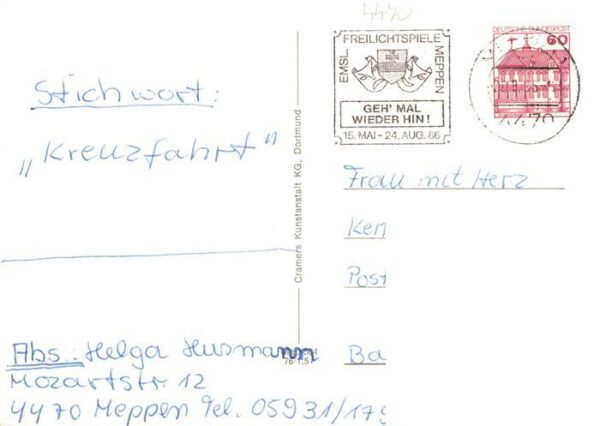 4470
EMSL. FREILICHTSPIELE MEPPEN
GEH' MAL
WIEDER HIN!
15. MAI - 24. AUG. 86
DEUTSCHE BUNDESPOST
60
4470
Stichwort:
„Kreuzfahrt"
Cramers Kunstanstalt KG, Dortmund
Frau mit Herz
Ken
Post
Ba
Abs.: Helga Husmann
Mozartstr. 12
4470 Meppen Tel. 05931/17